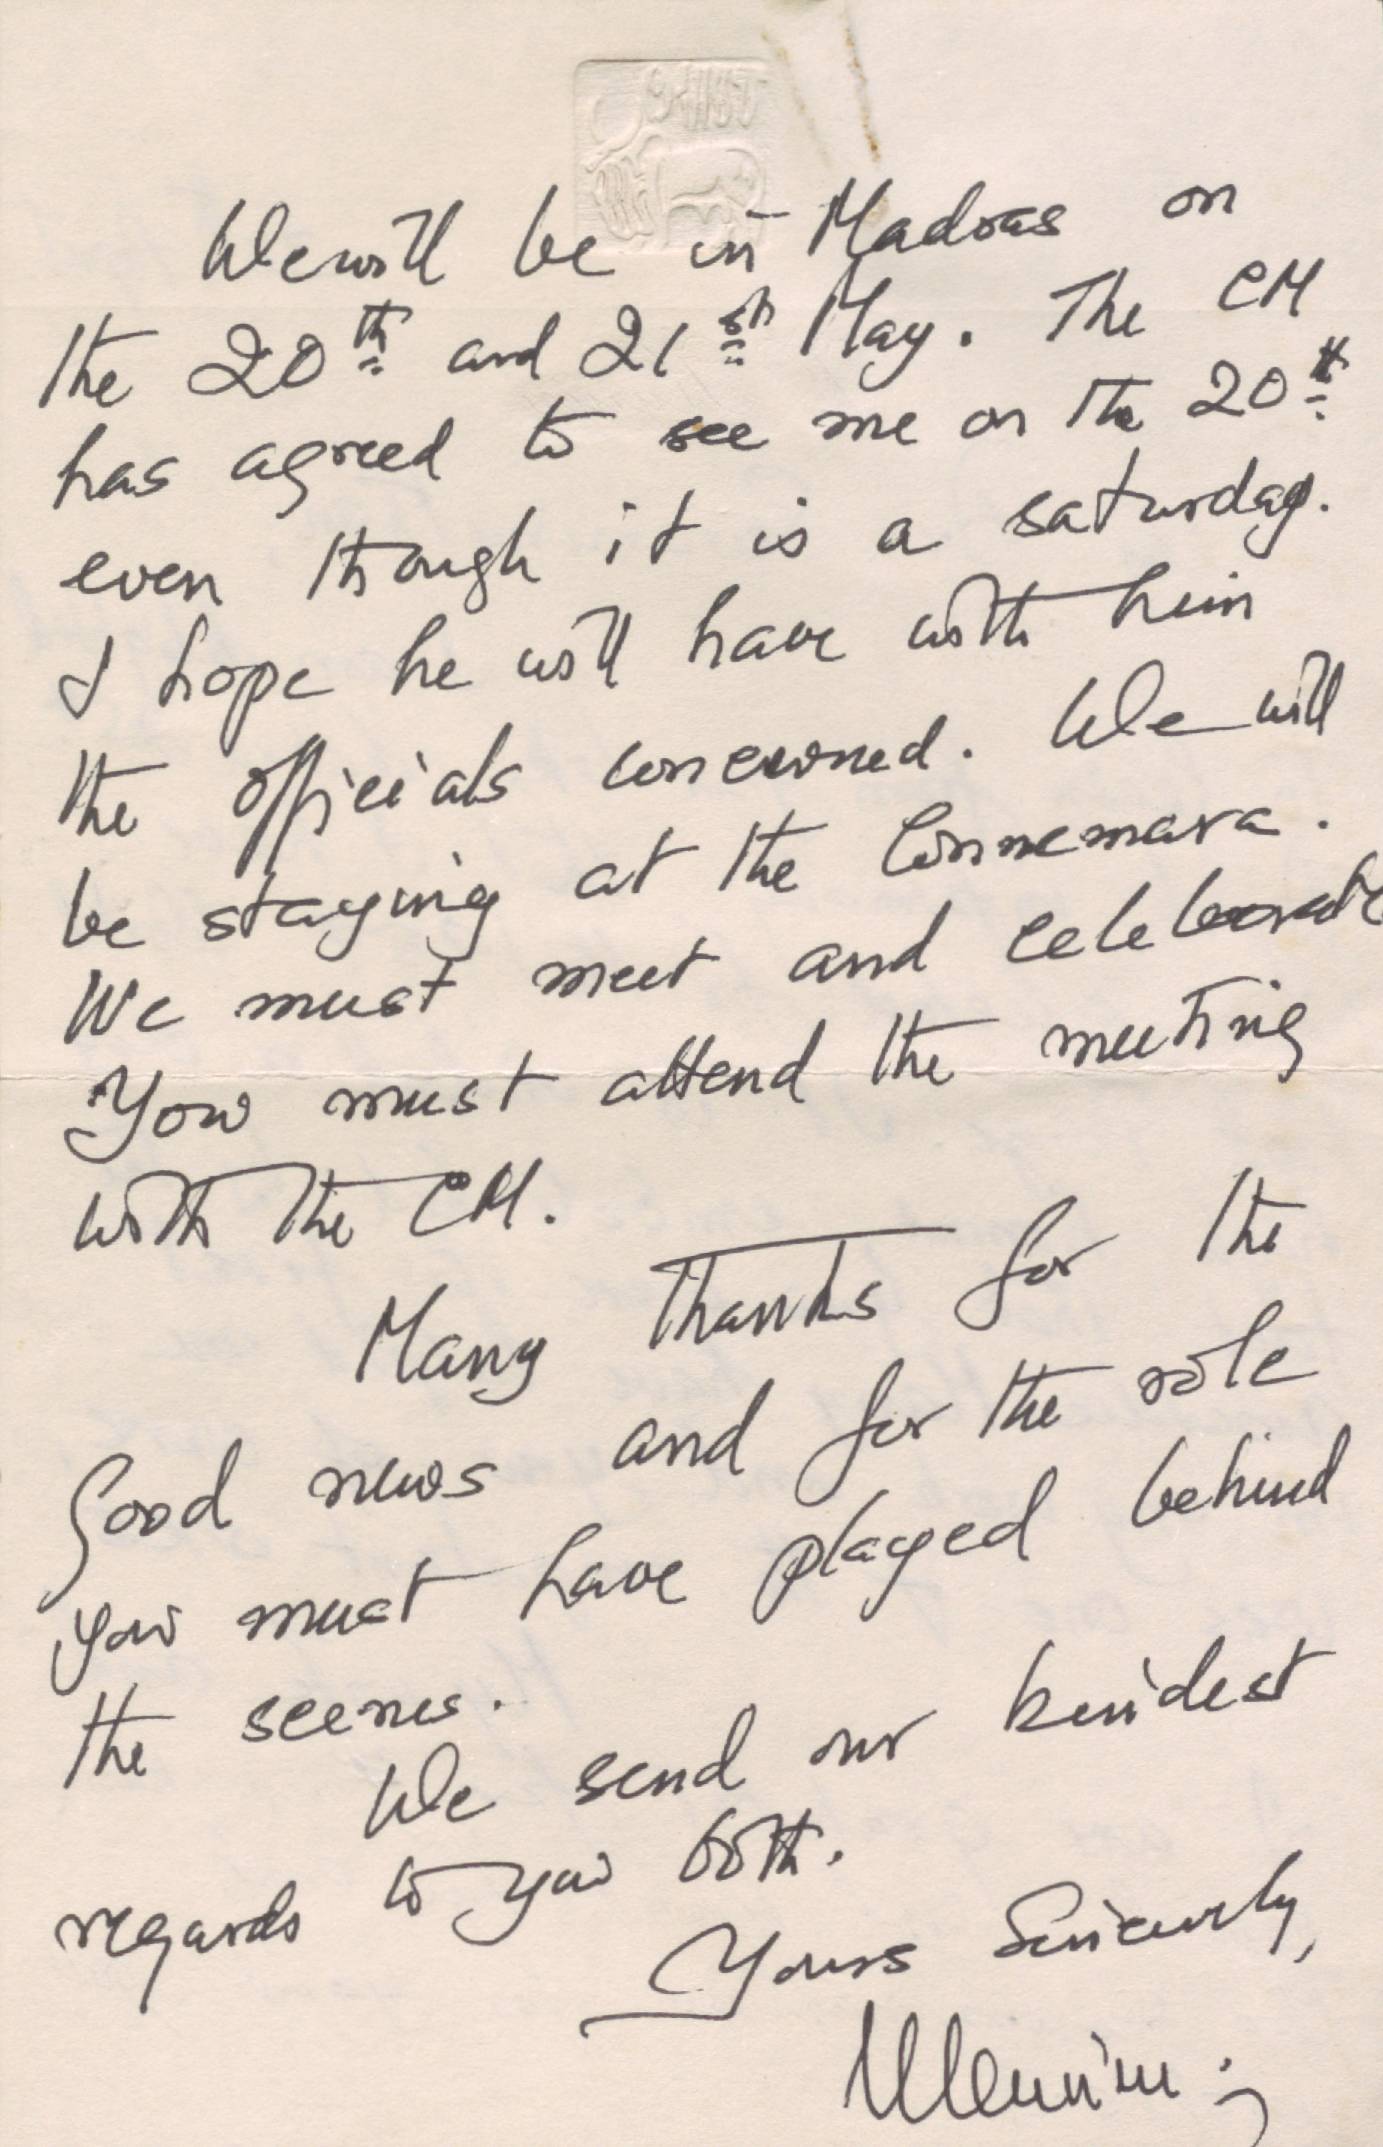 We will be in Madras on
the 20th and 21st May. The CM
has agreed to see me on the 20th
even though it is a saturday.
I hope he will have with him
the officials concerned. We will
be staying at the Connemara.
We must meet and celebrate
You must attend the meeting
with the CM.
Many Thanks for the
Good news and for the role
you must have played behind
the scenes.
We send our kindest
regards to you both.
Yours Sincerely,